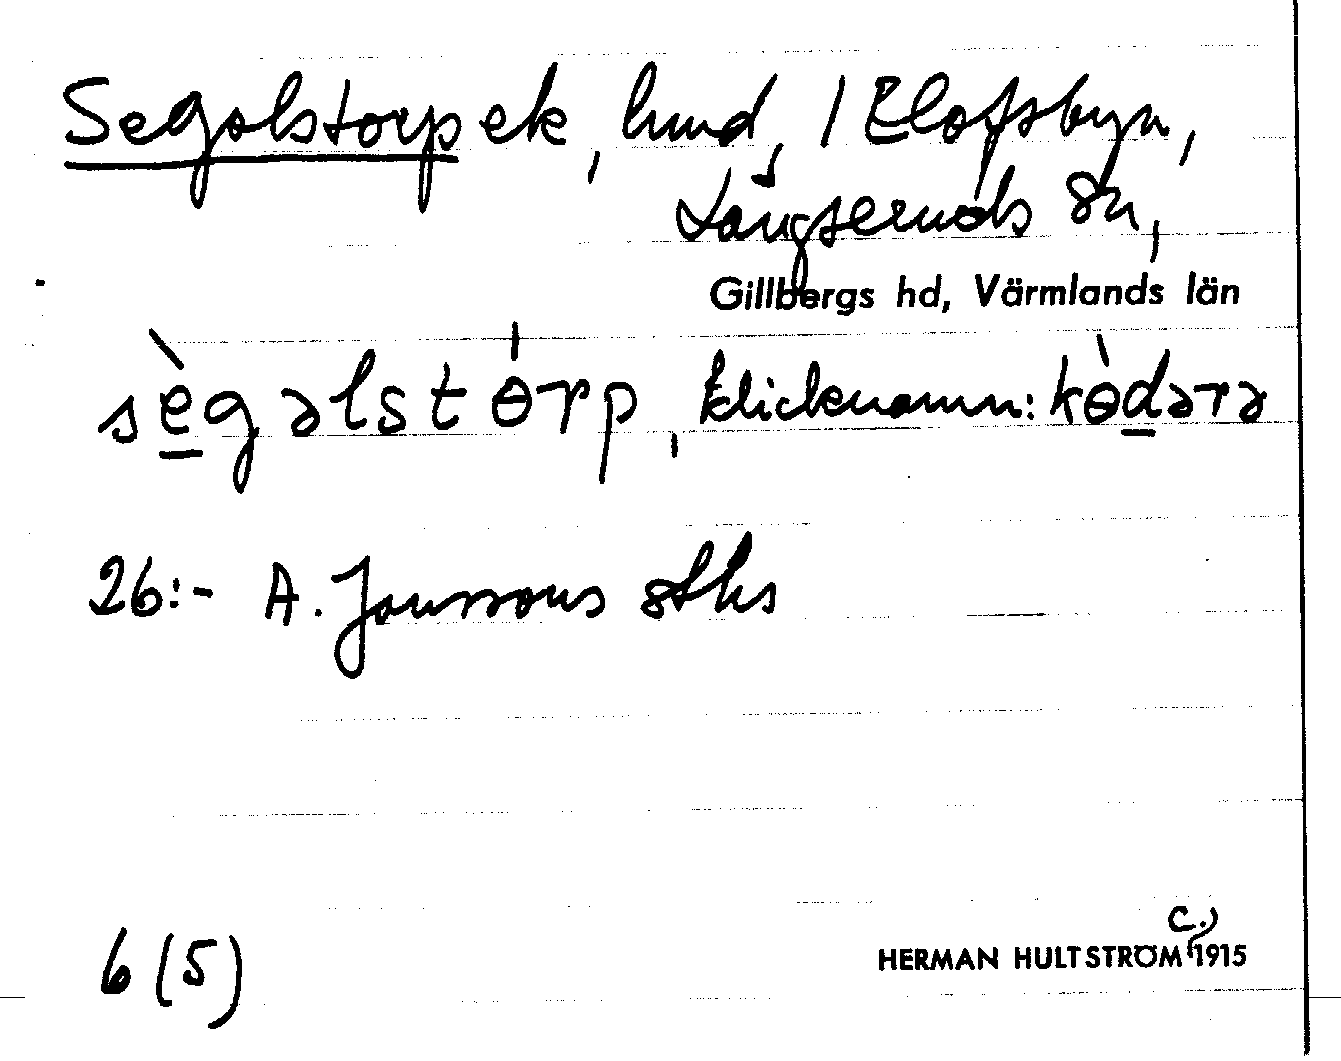 Segolstorp ek, hmd, 1 Elofsbyn,
Långseruds sn,
Gillbergs hd, Värmlands län
sègəlstɵ́rp, klicknamn: kɵ̀dərə
26:- A. Jonssons sths
c.)
6 (5) HERMAN HULTSTRÖM 1915